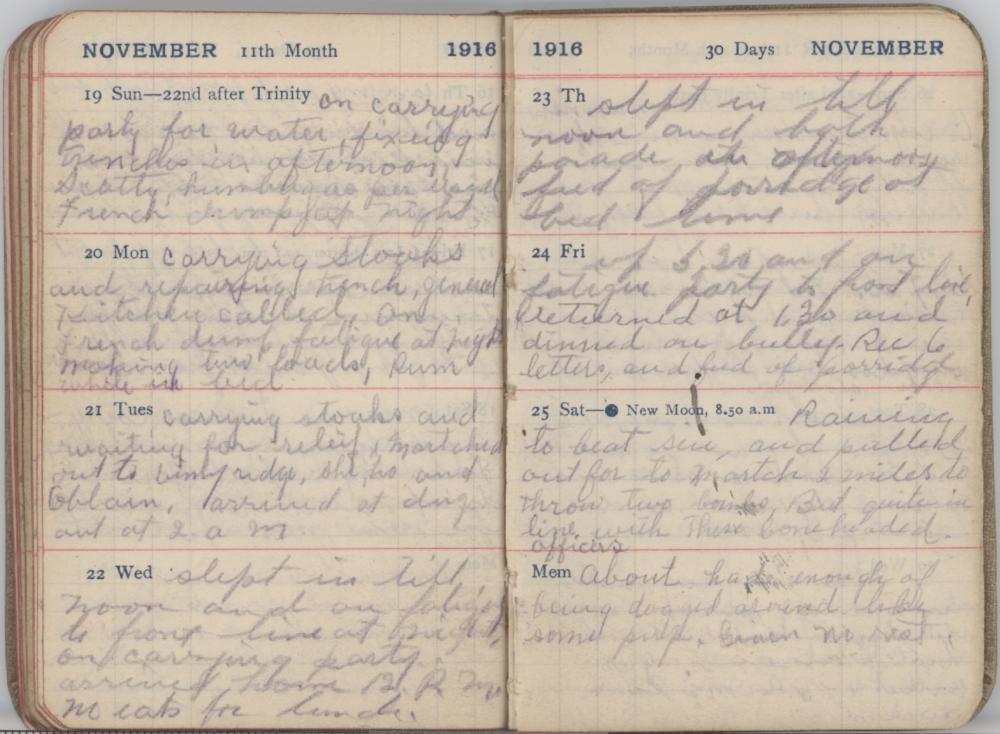 NOVEMBER 11th Month 1916
19 Sun—22nd after Trinity on carrying
party for water, fixing
trenches in afternoon,
Scotty humbug as per
French dump at night
20 Mon carrying stoaks
and repairing trench, general
Kitchen called, on
French dump fatigue at night
making two loads, Rum
while in bed
21 Tues carrying stoaks and
waiting for relief, martched
out to vimy ridge, and
Oblain, arrived at dug
out at 2 a m
22 Wed slept in till
noon and on fatigue
to front line at night,
on carrying party.
arrived home 12. P. M
no eats for lunch.
1916 30 Days NOVEMBER
23 Th slept in till
noon and both
parade in afternoon
feed of porridge at
bed time
24 Fri up 5.30 and on
fatigue party to front line,
returned at 1,30 and
dinned on bully. Rec 6
letters, and feed of porridge
25 Sat—● New Moon, 8.50 a.m Raining
to beat sin, and pulled
out for to martch 2 miles to
throw two bombs, But quite in
line with These boneheaded.
officers
Mem About had enough of
being dogged around like
some pup. Given no rest.